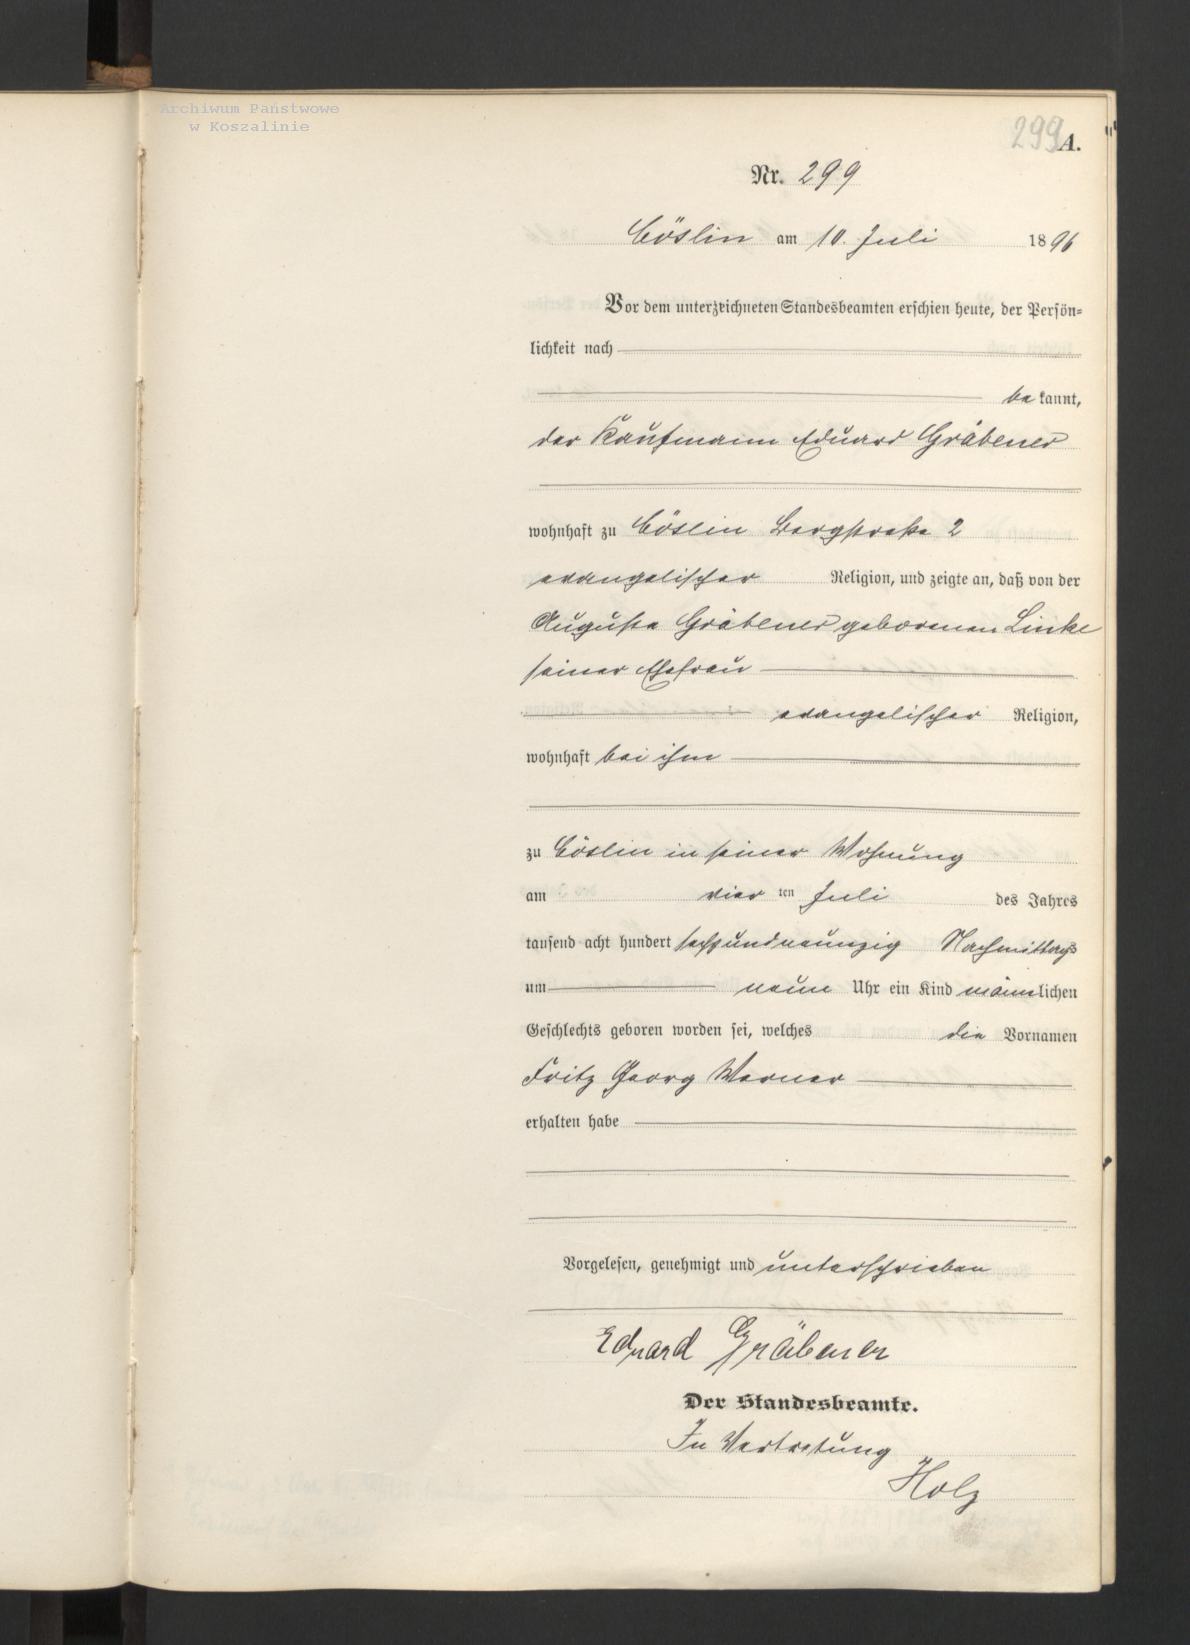 Archiwum Państwowe
w Koszalinie
299
A.
Nr. 299
Cöslin am 10. Juli 1896
Vor dem unterzeichneten Standesbeamten erschien heute, der Persön-
lichkeit nach
be kannt,
der Kaufmann Eduard Gräbener
wohnhaft zu Cöslin Bergstraße 2
evangelischer Religion, und zeigte an, daß von der
Auguste Gräbener geborenen Linke
seiner Ehefrau
evangelischer Religion,
wohnhaft bei ihm
zu Cöslin in seiner Wohnung
am vier ten Juli des Jahres
tausend acht hundert sechsundneunzig Nachmittags
um neun Uhr ein Kind männlichen
Geschlechts geboren worden sei, welches die Vornamen
Fritz Georg Werner
erhalten habe
Vorgelesen, genehmigt und unterschrieben
Eduard Gräbener
Der Standesbeamte.
In Vertretung
Holz